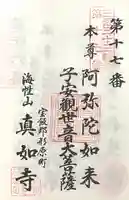 第十七番
本尊阿弥陀如来
子安觀世音大菩薩
宝飯郡形原町
海性山真如寺